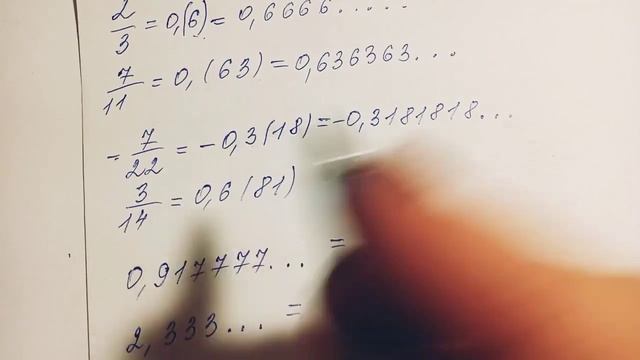 2/3 = 0,(6) = 0,6666.....
7/11 = 0,(63) = 0,636363...
- 7/22 = -0,3(18) = -0,3181818...
3/14 = 0,6(81)
0,917777... =
2,333... =